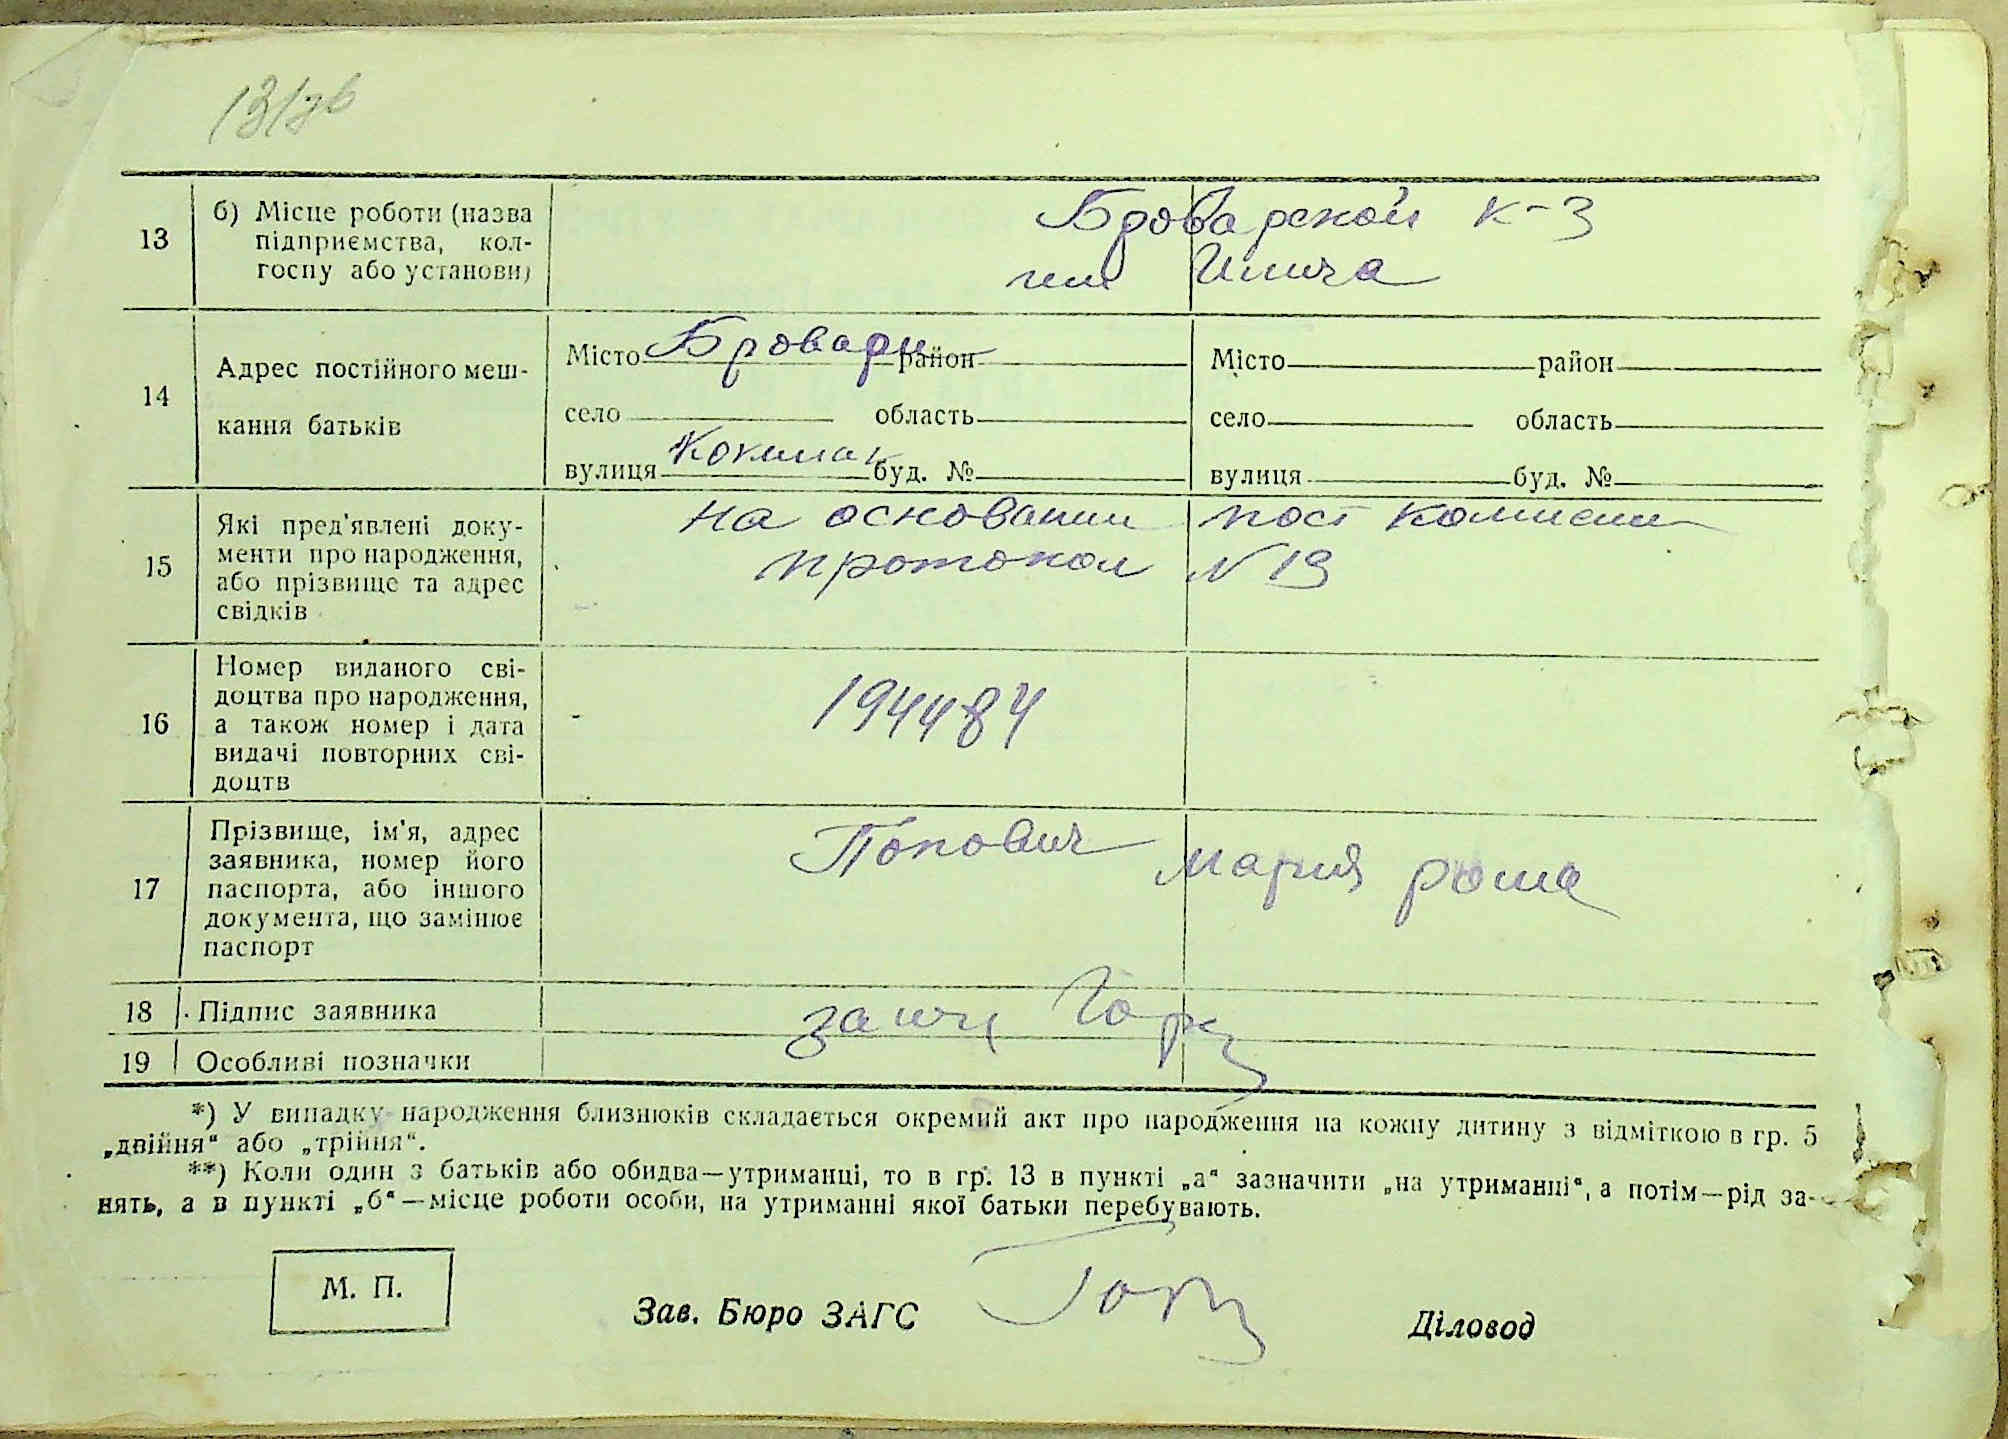 13/зв
13
б) Місце роботи (назва
підприємства, кол-
госпу або установи)
Броварской к-з
им Ильича
14
Адрес постійного меш-
кання батьків
Місто Бровари район
село область
вулиця буд. №
Місто район
село область
вулиця буд. №
15
Які пред'явлені доку-
менти про народження,
або прізвище та адрес
свідків
на основании пост комисии
протокол N 19
16
Номер виданого сві-
доцтва про народження,
а також номер і дата
видачі повторних сві-
доцтв
194484
17
Прізвище, ім'я, адрес
заявника, номер його
паспорта, або іншого
документа, що замінює
паспорт
Попович Мария
18
Підпис заявника
19
Особливі позначки
*) У випадку народження близнюків складається окремий акт про народження на кожну дитину з відміткою в гр. 5
„двійня“ або „трійня“.
**) Коли один з батьків або обидва—утриманці, то в гр. 13 в пункті „а“ зазначити „на утриманні“, а потім—рід за-
нять, а в пункті „б“—місце роботи особи, на утриманні якої батьки перебувають.
М. П.
Зав. Бюро ЗАГС
Діловод